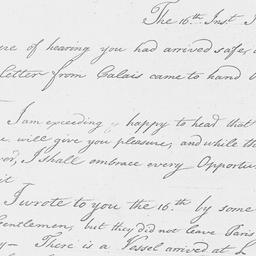 The 16th. Inst. I
ure of hearing you had arrived safe a
Letter from Calais came to hand
I am exceeding happy to hear that
will give you pleasure, and while th
I shall embrace every Opportu
it
I wrote to you the 16th. by some
Gentlemen, but they did not leave Paris
There is a Vessel arrived at L